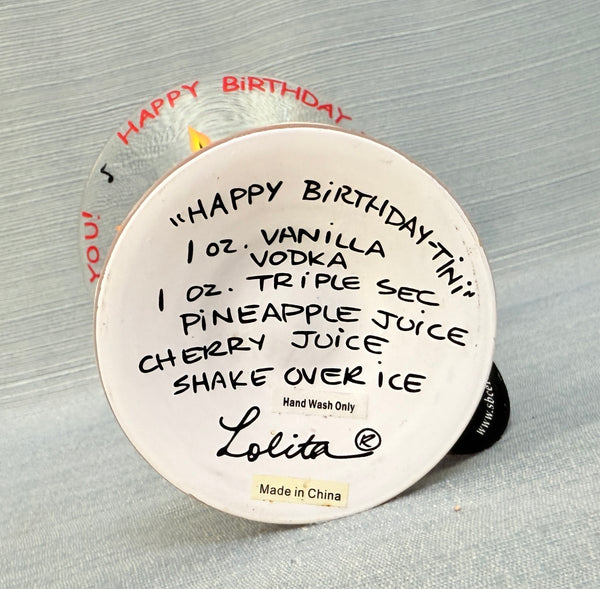 YOU! ♪ HAPPY BiRTHDAY
"HAPPY BiRTHDAY-TiNi"
1 oz. VANiLLA
VODKA
1 oz. TRiPLE SEC
PiNEAPPLE JUiCE
CHERRY JUiCE
SHAKE OVER iCE
Hand Wash Only
Lolita®
Made in China